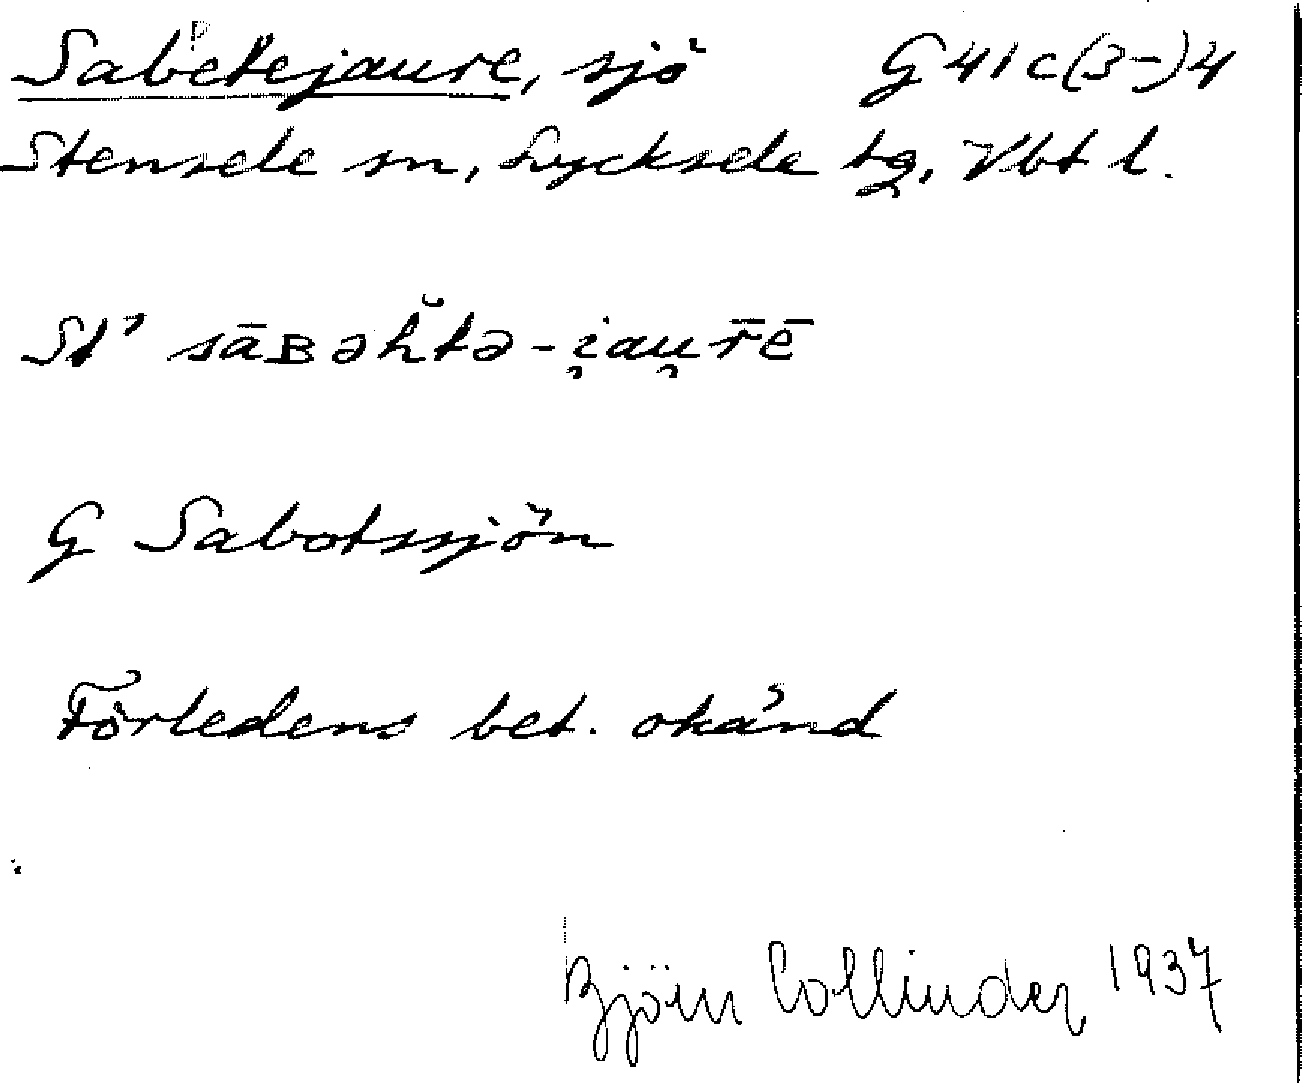 Sabetejaure, sjö G 41 c (3-) 4
Stensele sn, Lycksele tg, Vbt l.
St' sāʙəh̆tə-i̯au̯r̄ē
G Sabotssjön
Förledens bet. okänd
Björn Collinder 1937